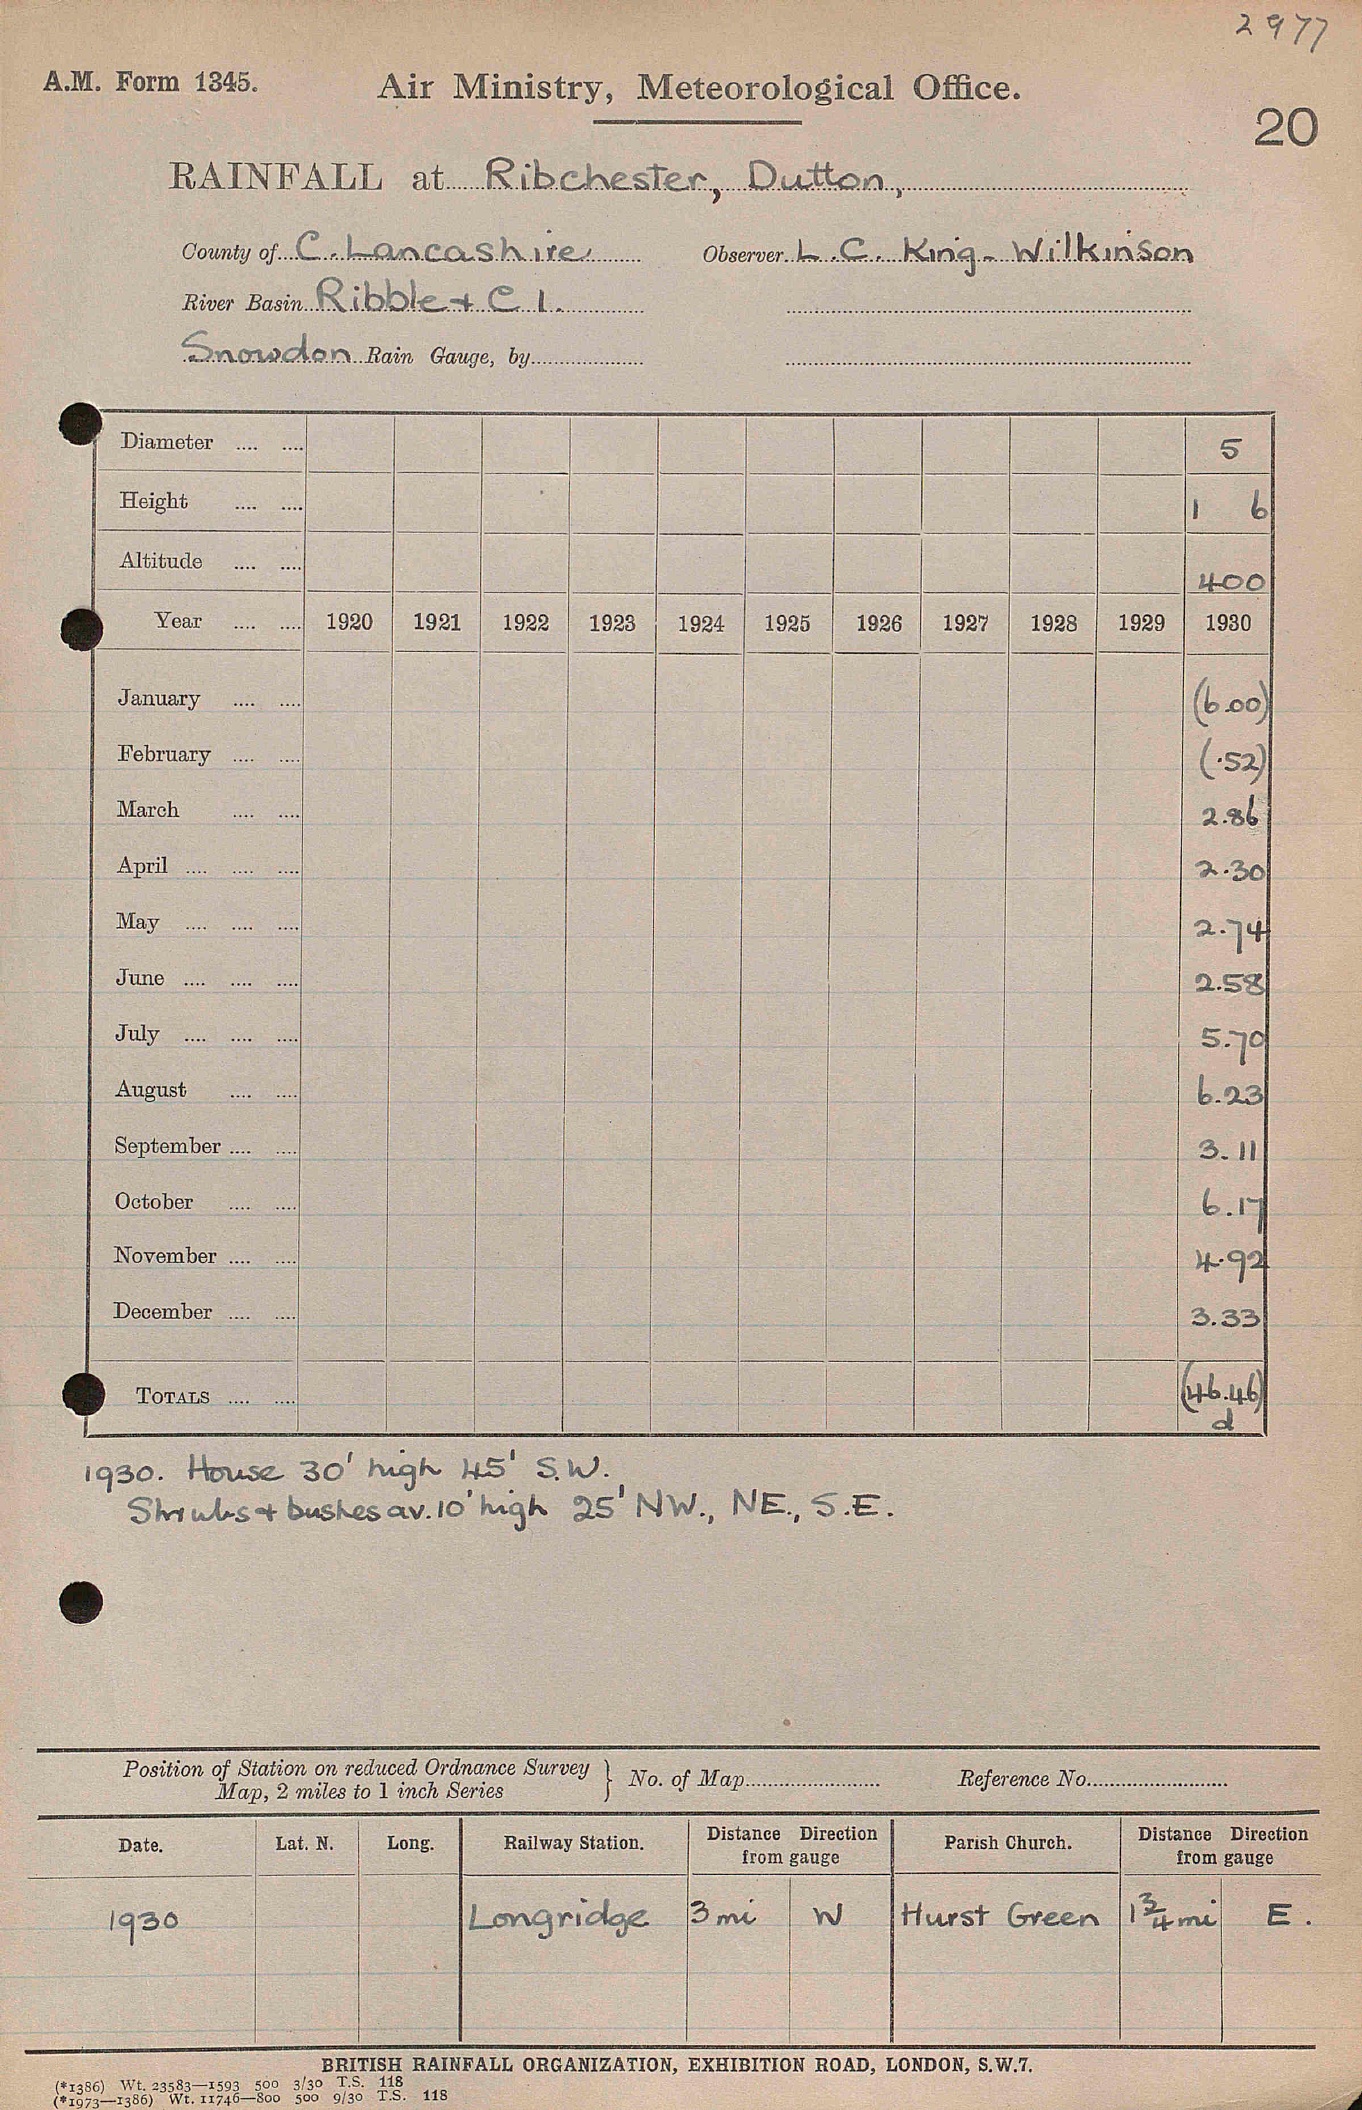 2977
A.M. Form 1345. Air Ministry, Meteorological Office.
20
RAINFALL at Ribchester, Dutton,
County of C. Lancashire Observer L. C. King-Wilkinson
River Basin Ribble + C 1.
Snowdon Rain Gauge, by
Diameter 5
Height 1 6
Altitude 400
Year 1920 1921 1922 1923 1924 1925 1926 1927 1928 1929 1930
January (6.00)
February (.52)
March 2.86
April 2.30
May 2.74
June 2.58
July 5.70
August 6.23
September 3.11
October 6.17
November 4.92
December 3.33
TOTALS (46.46)
d
1930. House 30' high 45' S.W.
Shrubs + bushes av. 10' high 25' NW., NE., S.E.
Position of Station on reduced Ordnance Survey
Map, 2 miles to 1 inch Series } No. of Map Reference No.
Date. Lat. N. Long. Railway Station. Distance Direction from gauge Parish Church. Distance Direction from gauge
1930 Longridge 3 mi W Hurst Green 1 3/4 mi E.
BRITISH RAINFALL ORGANIZATION, EXHIBITION ROAD, LONDON, S.W.7.
(*1386) Wt. 23583—1593 500 3/30 T.S. 118
(*1973—1386) Wt. 11746—800 500 9/30 T.S. 118